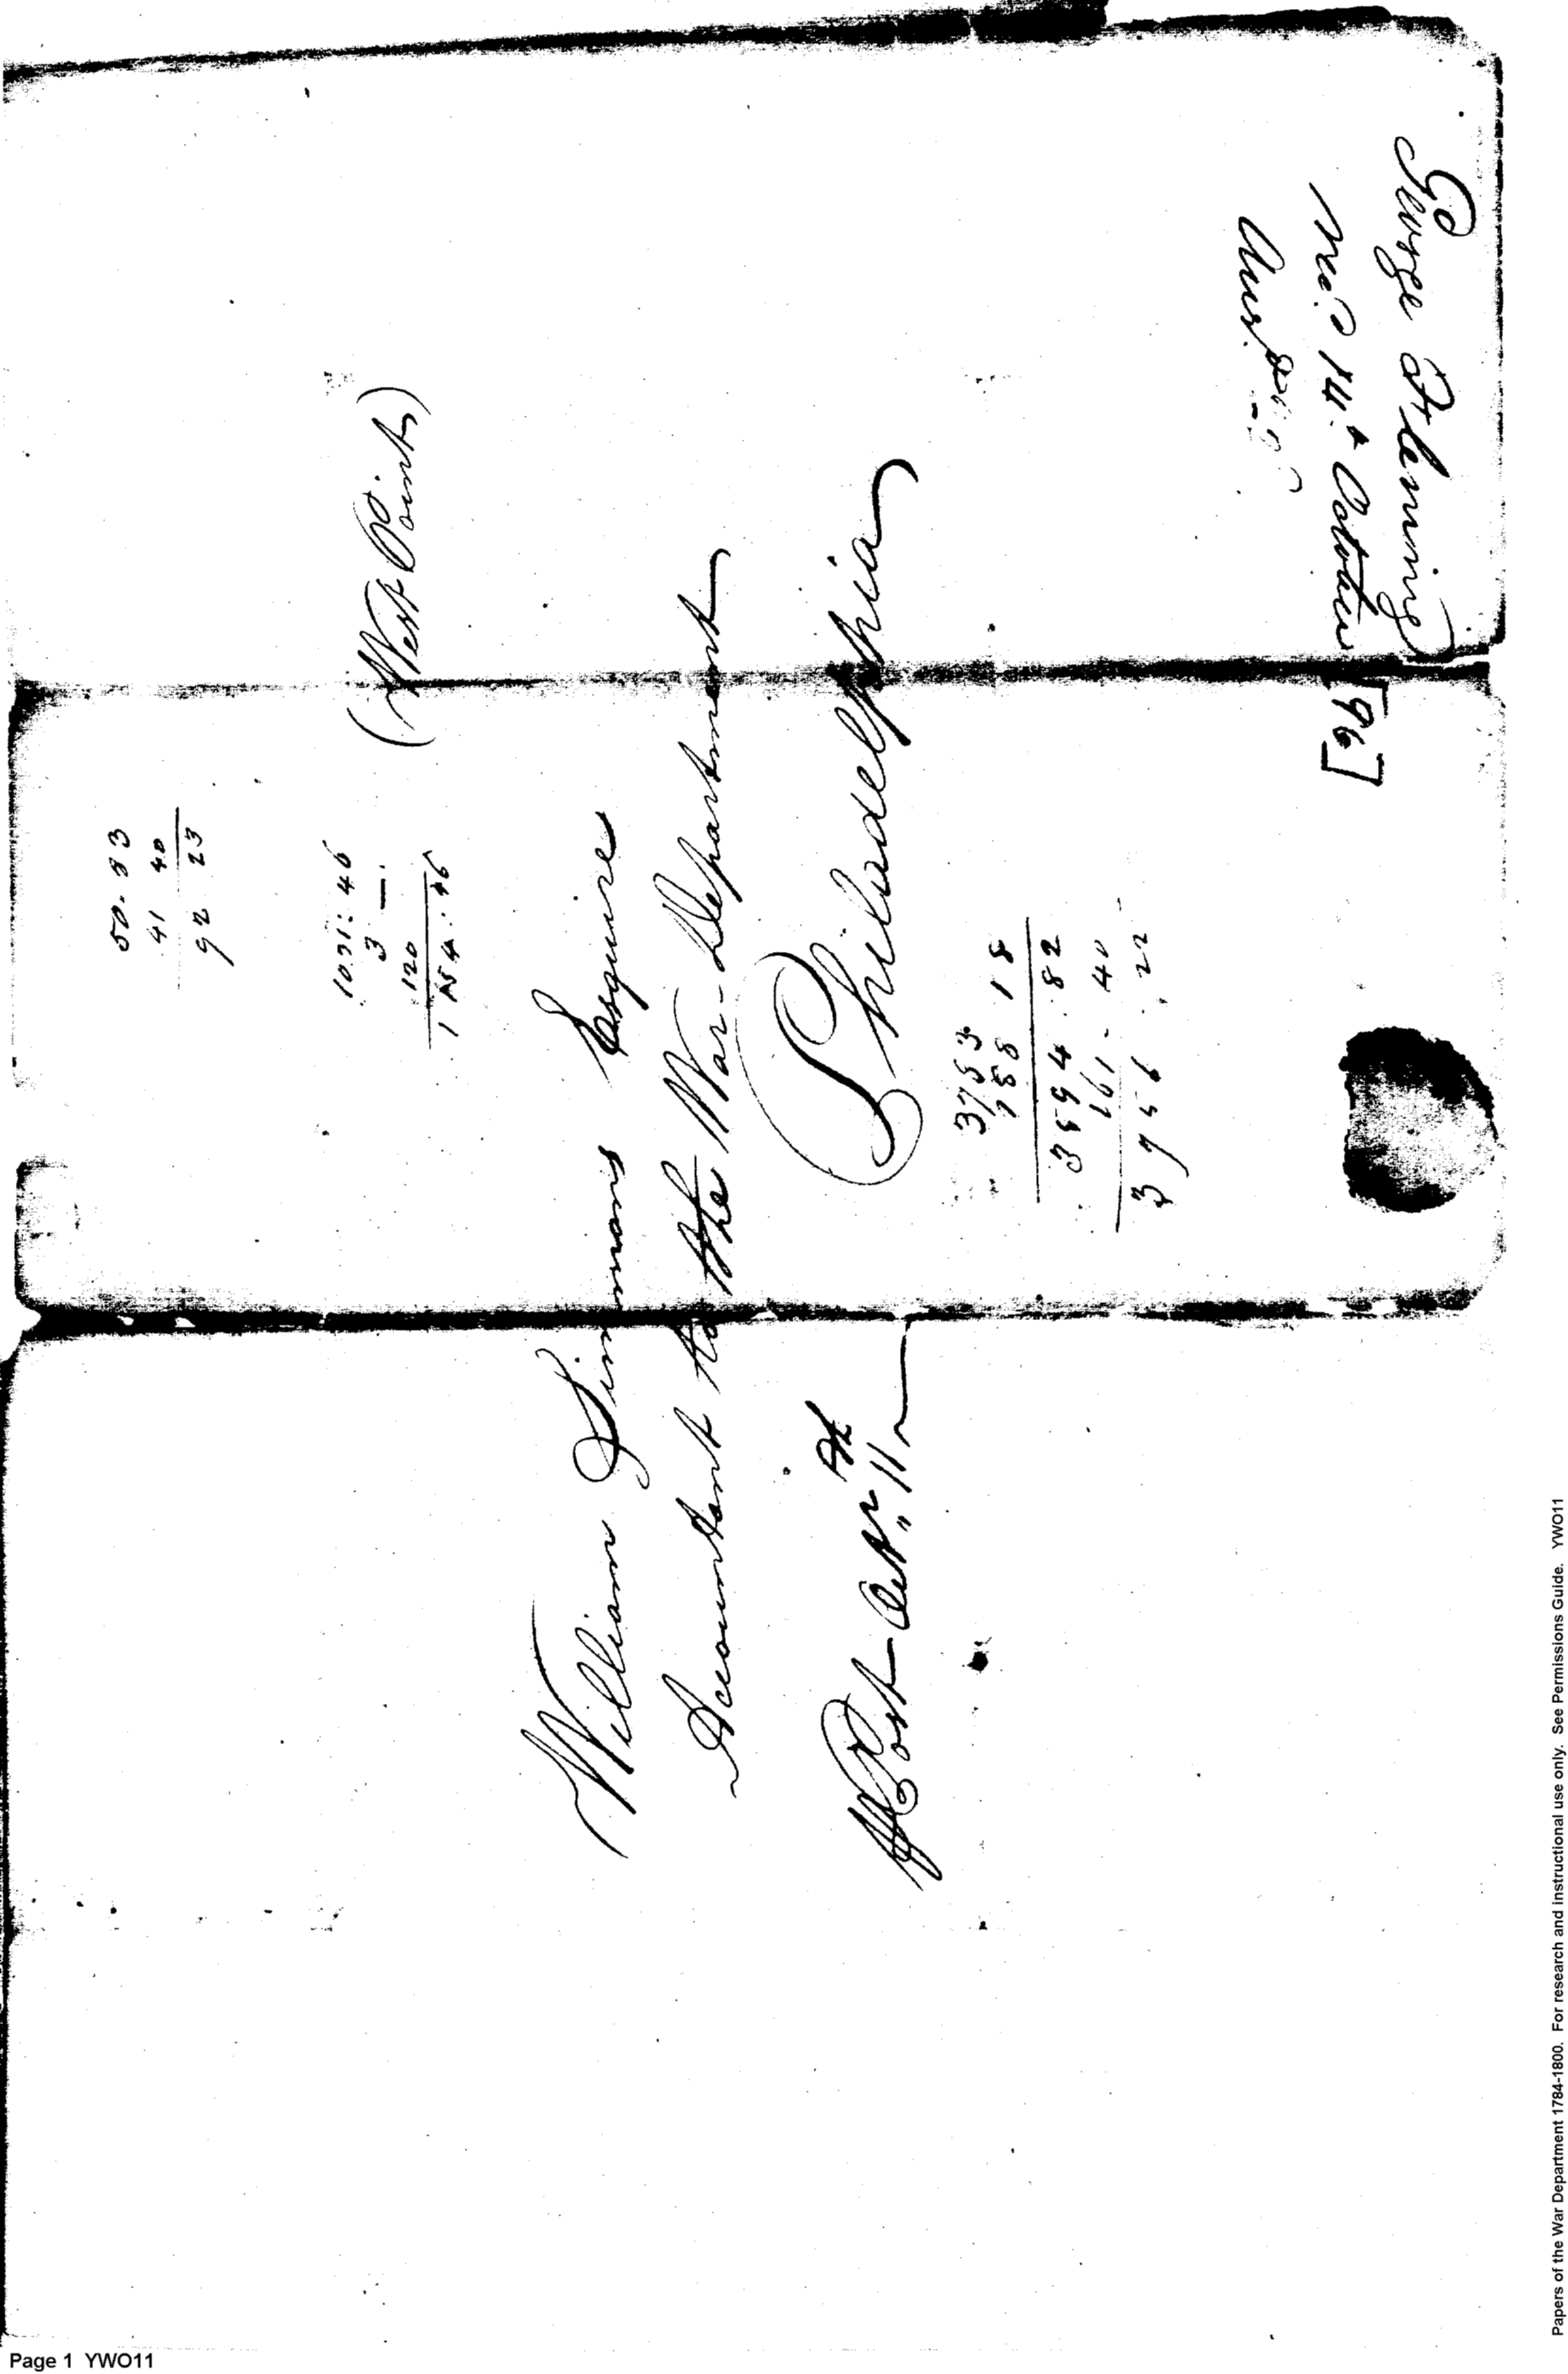 50 - 83
41 40
92 23
(West Point)
1031 : 46
3 —
120
1154 : 46
William Simmons Esquire
Accountant to the War-Department
Philadelphia
Post Octr. 11th
3753
158 18
3594 . 82
161 - 40
3756 . 22
George Fleming
Recd 14th October
[96]
Page 1 YWO11
Papers of the War Department 1784-1800. For research and instructional use only. See Permissions Guide. YWO11